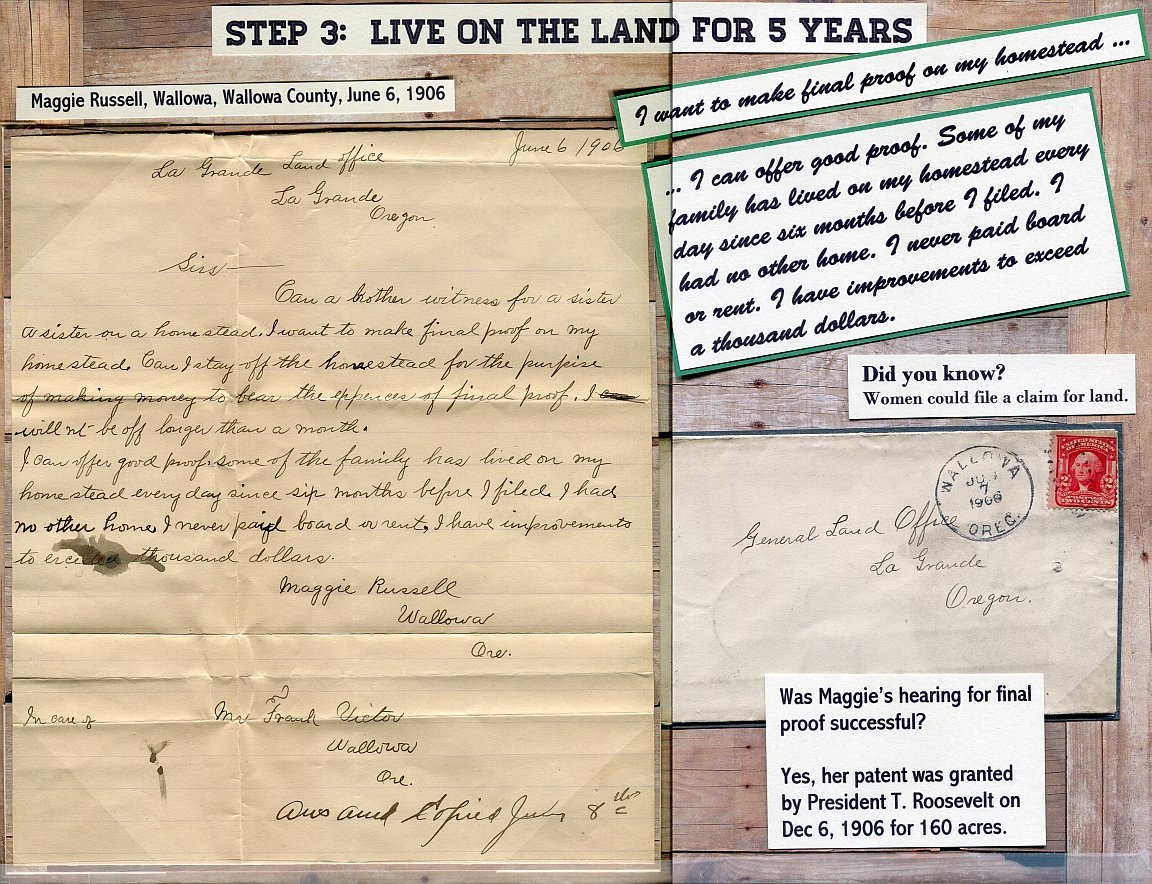 STEP 3: LIVE ON THE LAND FOR 5 YEARS
Maggie Russell, Wallowa, Wallowa County, June 6, 1906
June 6 1906
La Grande Land office
La Grande
Oregon
Sirs
Can a brother witness for a sister
a sister on a homestead. I want to make final proof on my
homestead. Can I stay off the homestead for the purpise
of making money to bear the expences of final proof. I
will nt be off longer than a month.
I can offer good proof. some of the family has lived on my
homestead every day since six months before I filed. I had
no other home, I never paid board or rent, I have improvements
to thousand dollars.
Maggie Russell
Wallowa
Ore.
In care of Mr Frank Victor
Wallowa
Ore.
Ans and Copied 8th
I want to make final proof on my homestead ...
... I can offer good proof. Some of my
family has lived on my homestead every
day since six months before I filed. I
had no other home. I never paid board
or rent. I have improvements to exceed
a thousand dollars.
Did you know?
Women could file a claim for land.
WALLOWA
7
1906
OREG.
UNITED STATES
OF AMERICA
2 2
POSTAGE
TWO CENTS
General Land Office
La Grande
Oregon.
Was Maggie's hearing for final
proof successful?
Yes, her patent was granted
by President T. Roosevelt on
Dec 6, 1906 for 160 acres.